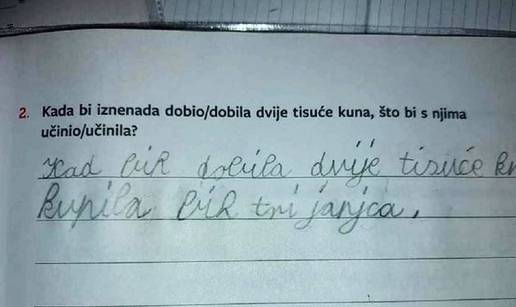 2. Kada bi iznenada dobio/dobila dvije tisuće kuna, što bi s njima
učinio/učinila?
Kad bih dobila dvije tisuće
kupila bih tri janjca.